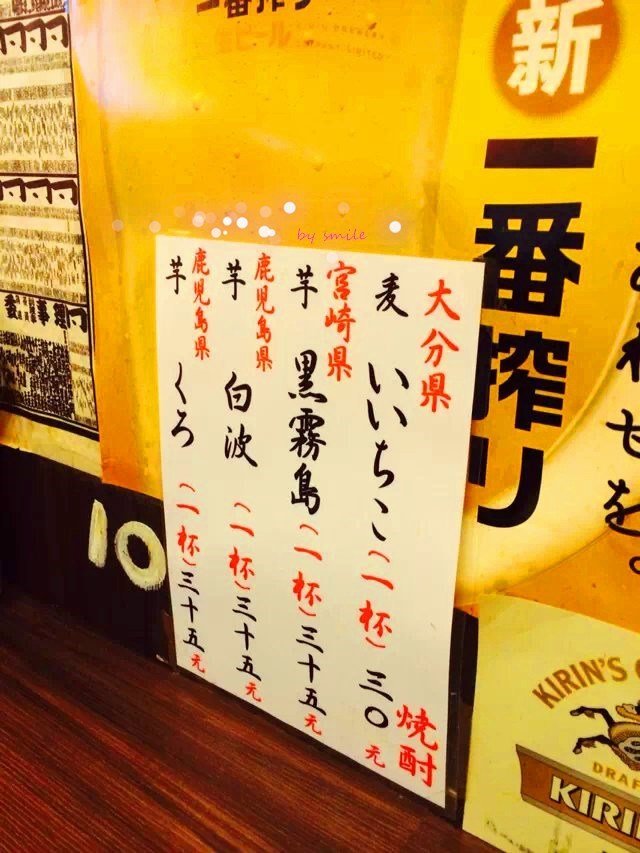 一番搾り
生ビール
新
一番搾り
by smile
大分県
焼酎
麦 いいちこ (一杯) 三〇元
宮崎県
芋 黒霧島 (一杯) 三十五元
鹿児島県
芋 白波 (一杯) 三十五元
鹿児島県
芋 くろ (一杯) 三十五元
10
KIRIN'S
DRAF
KIRI